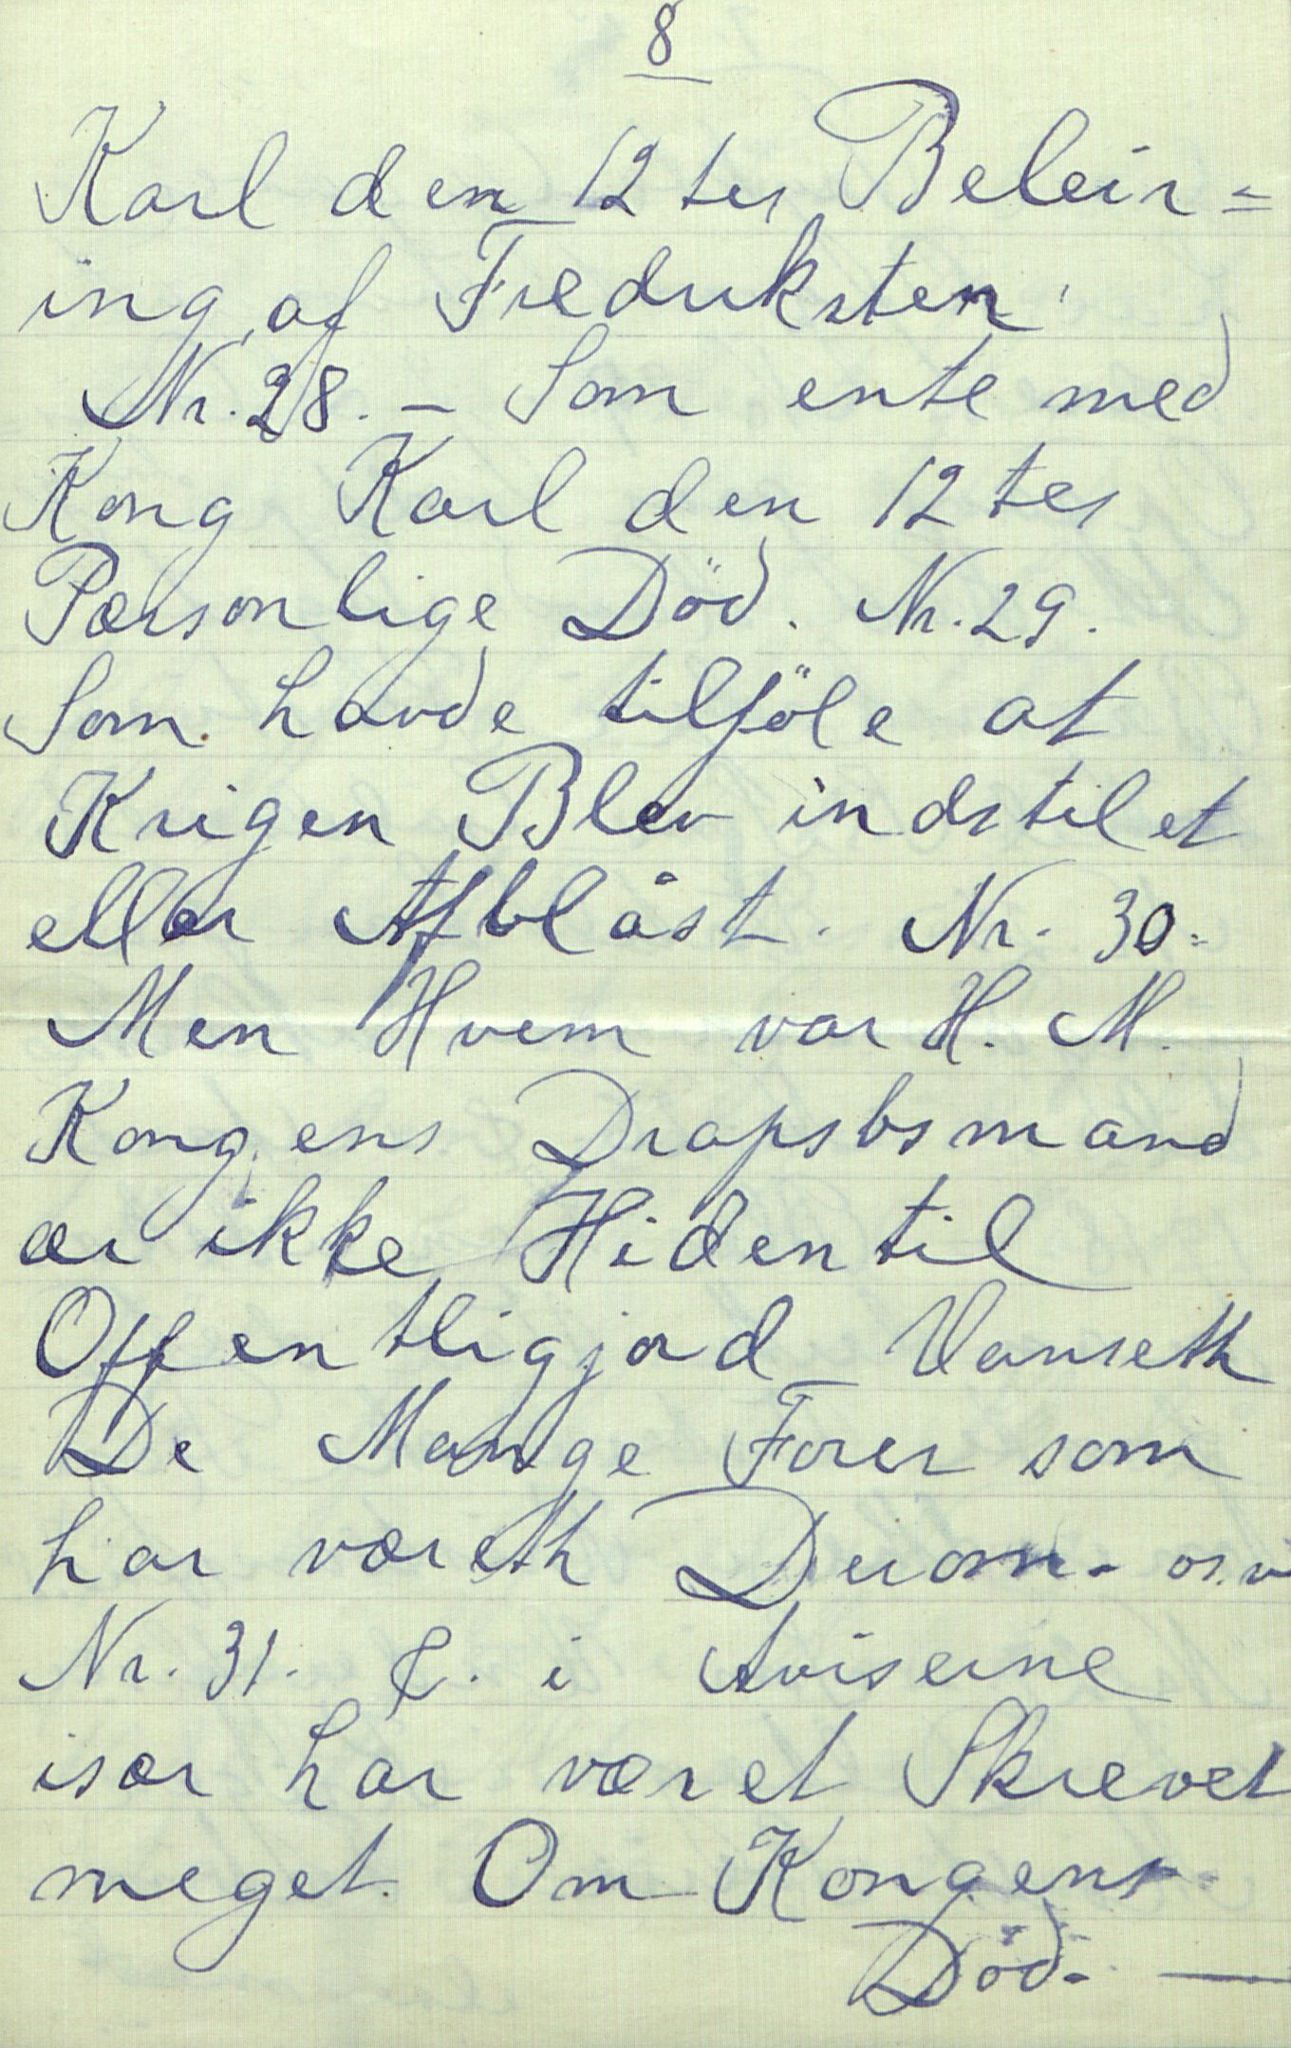 8
Karl den 12 tes Beleir=
ing af Fredriksten
Nr. 28. – Som ente med
Kong Karl den 12 tes
Pærsonlige Död. Nr. 29.
Som havde tilföle at
Krigen Blev indstilet
eller Afblåst. Nr. 30.
Men Hvem var H. M.
Kongens Drapsbsmand
ær ikke Hidentil
Offentligjord Vanseth
De Mange Forer som
har væreth Derom. os.v
Nr. 31. i Aviserne
især har været Skrevet
meget. Om Kongens
Död. —